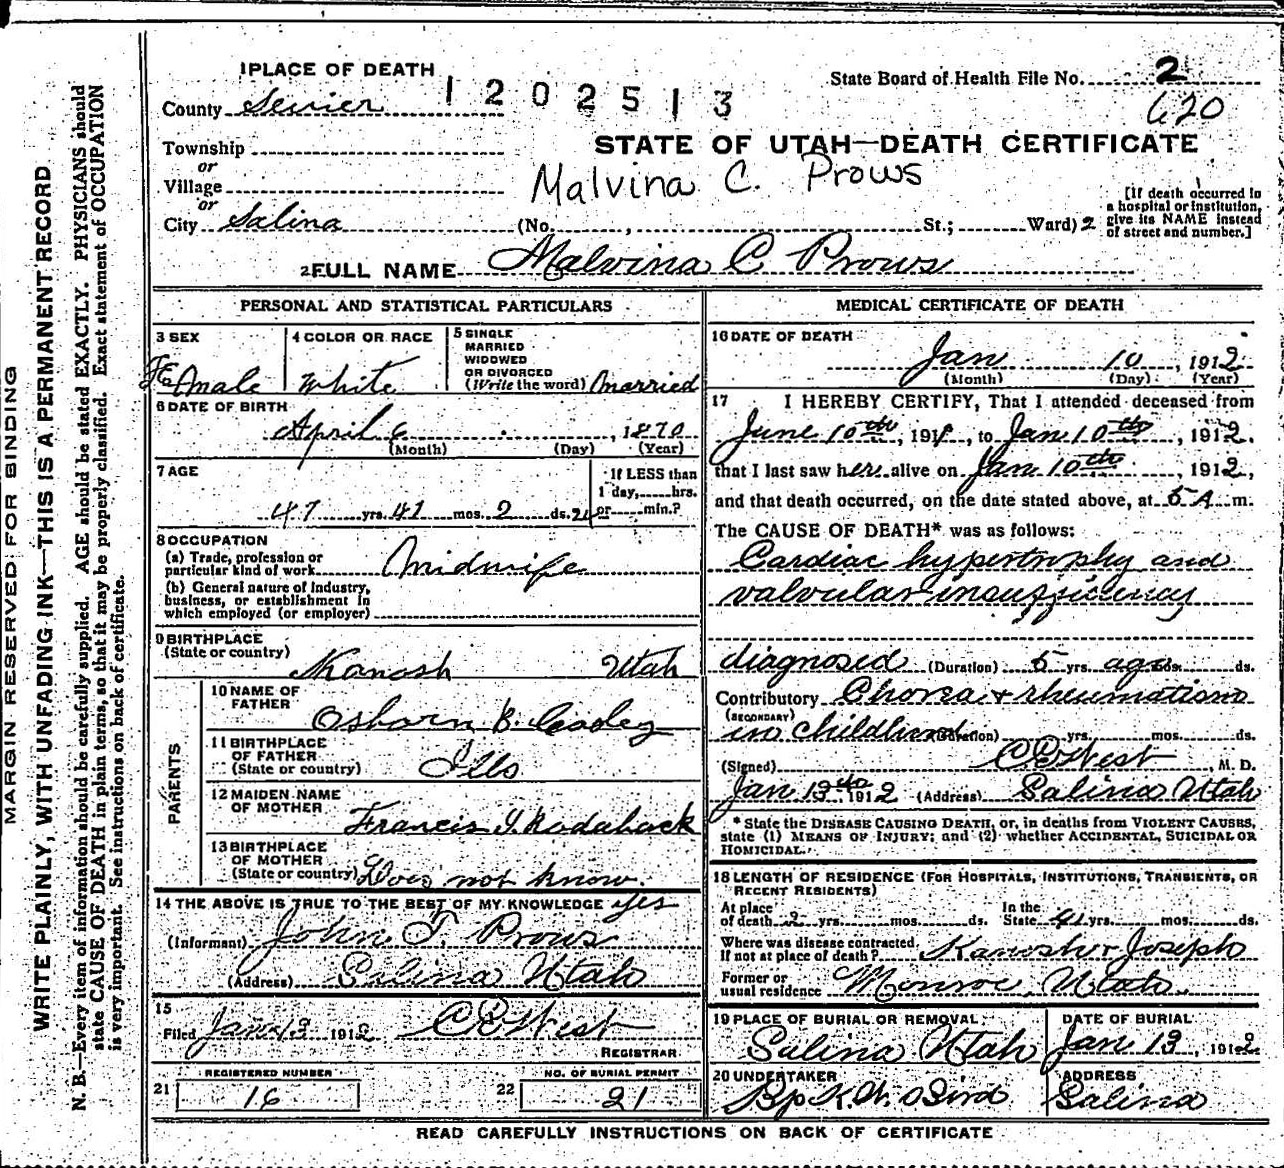 1 PLACE OF DEATH
1202513
State Board of Health File No. 2
620
County Sevier
STATE OF UTAH—DEATH CERTIFICATE
Township
or
Village
or
Malvina C. Prows
City Salina (No. , St.; Ward) 2
[If death occurred in a hospital or institution, give its NAME instead of street and number.]
2 FULL NAME Malvina C Prows
PERSONAL AND STATISTICAL PARTICULARS
3 SEX Female
4 COLOR OR RACE White
5 SINGLE MARRIED WIDOWED OR DIVORCED (Write the word) Married
6 DATE OF BIRTH
April 6, 1870
(Month) (Day) (Year)
7 AGE
47 yrs. 41 mos. 2 ds.
If LESS than 1 day, hrs. or min.?
8 OCCUPATION
(a) Trade, profession or particular kind of work Midwife
(b) General nature of industry, business, or establishment in which employed (or employer)
9 BIRTHPLACE
(State or country) Kanosh Utah
PARENTS
10 NAME OF FATHER Osborn B.
11 BIRTHPLACE OF FATHER (State or country) Ills
12 MAIDEN NAME OF MOTHER Francis
13 BIRTHPLACE OF MOTHER (State or country) Does not know
14 THE ABOVE IS TRUE TO THE BEST OF MY KNOWLEDGE yes
(Informant) John T. Prows
(Address) Salina Utah
15
Filed Jany 13 1912 C E West
REGISTRAR
21 REGISTERED NUMBER 16
22 NO. OF BURIAL PERMIT 21
MEDICAL CERTIFICATE OF DEATH
16 DATE OF DEATH
Jan 10, 1912
(Month) (Day) (Year)
17 I HEREBY CERTIFY, That I attended deceased from
June 10th, 191, to Jan 10th, 1912.
that I last saw her alive on Jan 10th, 1912,
and that death occurred, on the date stated above, at 5 A m.
The CAUSE OF DEATH* was as follows:
Cardiac hypertrophy and
valvular insufficiency
diagnosed (Duration) 5 yrs. ago mos. ds.
Contributory Chorea & rheumatism
(SECONDARY)
in childhood (Duration) yrs. mos. ds.
(Signed) C E West, M. D.
Jan 13th 1912 (Address) Salina Utah
* State the DISEASE CAUSING DEATH, or, in deaths from VIOLENT CAUSES, state (1) MEANS OF INJURY; and (2) whether ACCIDENTAL, SUICIDAL OR HOMICIDAL.
18 LENGTH OF RESIDENCE (FOR HOSPITALS, INSTITUTIONS, TRANSIENTS, OR RECENT RESIDENTS)
At place of death 2 yrs. mos. ds. In the State 41 yrs. mos. ds.
Where was disease contracted, If not at place of death? Kanosh & Joseph
Former or usual residence Monroe, Utah
19 PLACE OF BURIAL OR REMOVAL
Salina Utah
DATE OF BURIAL
Jan 13, 1912
20 UNDERTAKER
Bp K. W.
ADDRESS
Salina
READ CAREFULLY INSTRUCTIONS ON BACK OF CERTIFICATE
MARGIN RESERVED FOR BINDING
WRITE PLAINLY, WITH UNFADING INK—THIS IS A PERMANENT RECORD
N. B.—Every item of information should be carefully supplied. AGE should be stated EXACTLY. PHYSICIANS should
state CAUSE OF DEATH in plain terms, so that it may be properly classified. Exact statement of OCCUPATION
is very important. See instructions on back of certificate.